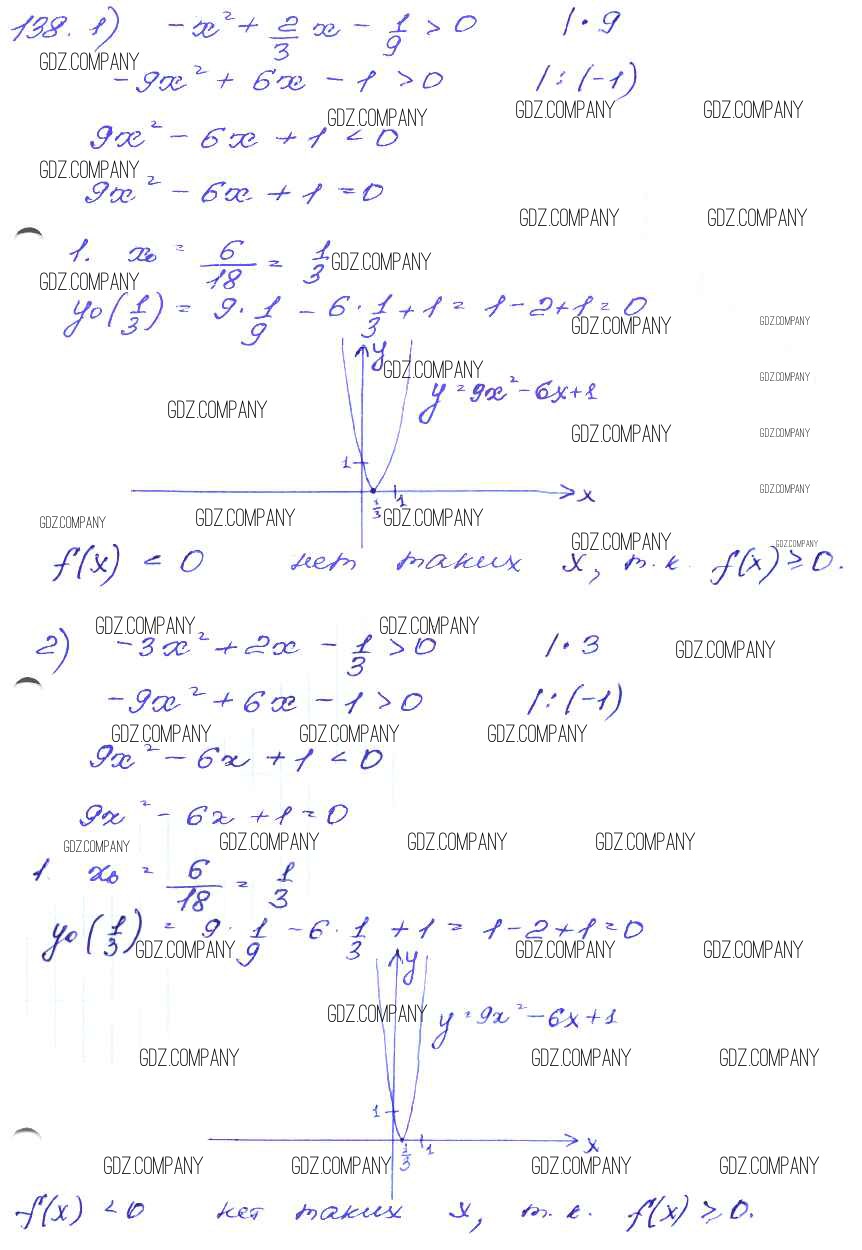 138. 1) -x² + 2/3 x - 1/9 > 0 | · 9
GDZ.COMPANY
-9x² + 6x - 1 > 0 | : (-1)
GDZ.COMPANY GDZ.COMPANY GDZ.COMPANY
9x² - 6x + 1 < 0
GDZ.COMPANY
9x² - 6x + 1 = 0
GDZ.COMPANY GDZ.COMPANY
1. x₀ = 6/18 = 1/3
GDZ.COMPANY
GDZ.COMPANY
y₀(1/3) = 9 · 1/9 - 6 · 1/3 + 1 = 1 - 2 + 1 = 0
GDZ.COMPANY GDZ.COMPANY
y
GDZ.COMPANY GDZ.COMPANY
y = 9x² - 6x + 1
GDZ.COMPANY
GDZ.COMPANY GDZ.COMPANY
1
GDZ.COMPANY
1/3 1 x
GDZ.COMPANY GDZ.COMPANY GDZ.COMPANY
GDZ.COMPANY GDZ.COMPANY
f(x) < 0 нет таких x, т.к. f(x) ≥ 0.
GDZ.COMPANY GDZ.COMPANY
2) -3x² + 2x - 1/3 > 0 | · 3
GDZ.COMPANY
-9x² + 6x - 1 > 0 | : (-1)
GDZ.COMPANY GDZ.COMPANY GDZ.COMPANY
9x² - 6x + 1 < 0
9x² - 6x + 1 = 0
GDZ.COMPANY GDZ.COMPANY GDZ.COMPANY GDZ.COMPANY
1. x₀ = 6/18 = 1/3
y₀(1/3) = 9 · 1/9 - 6 · 1/3 + 1 = 1 - 2 + 1 = 0
GDZ.COMPANY GDZ.COMPANY GDZ.COMPANY
y
GDZ.COMPANY
y = 9x² - 6x + 1
GDZ.COMPANY GDZ.COMPANY GDZ.COMPANY
1
1/3 1 x
GDZ.COMPANY GDZ.COMPANY GDZ.COMPANY GDZ.COMPANY
f(x) < 0 нет таких x, т.к. f(x) ≥ 0.